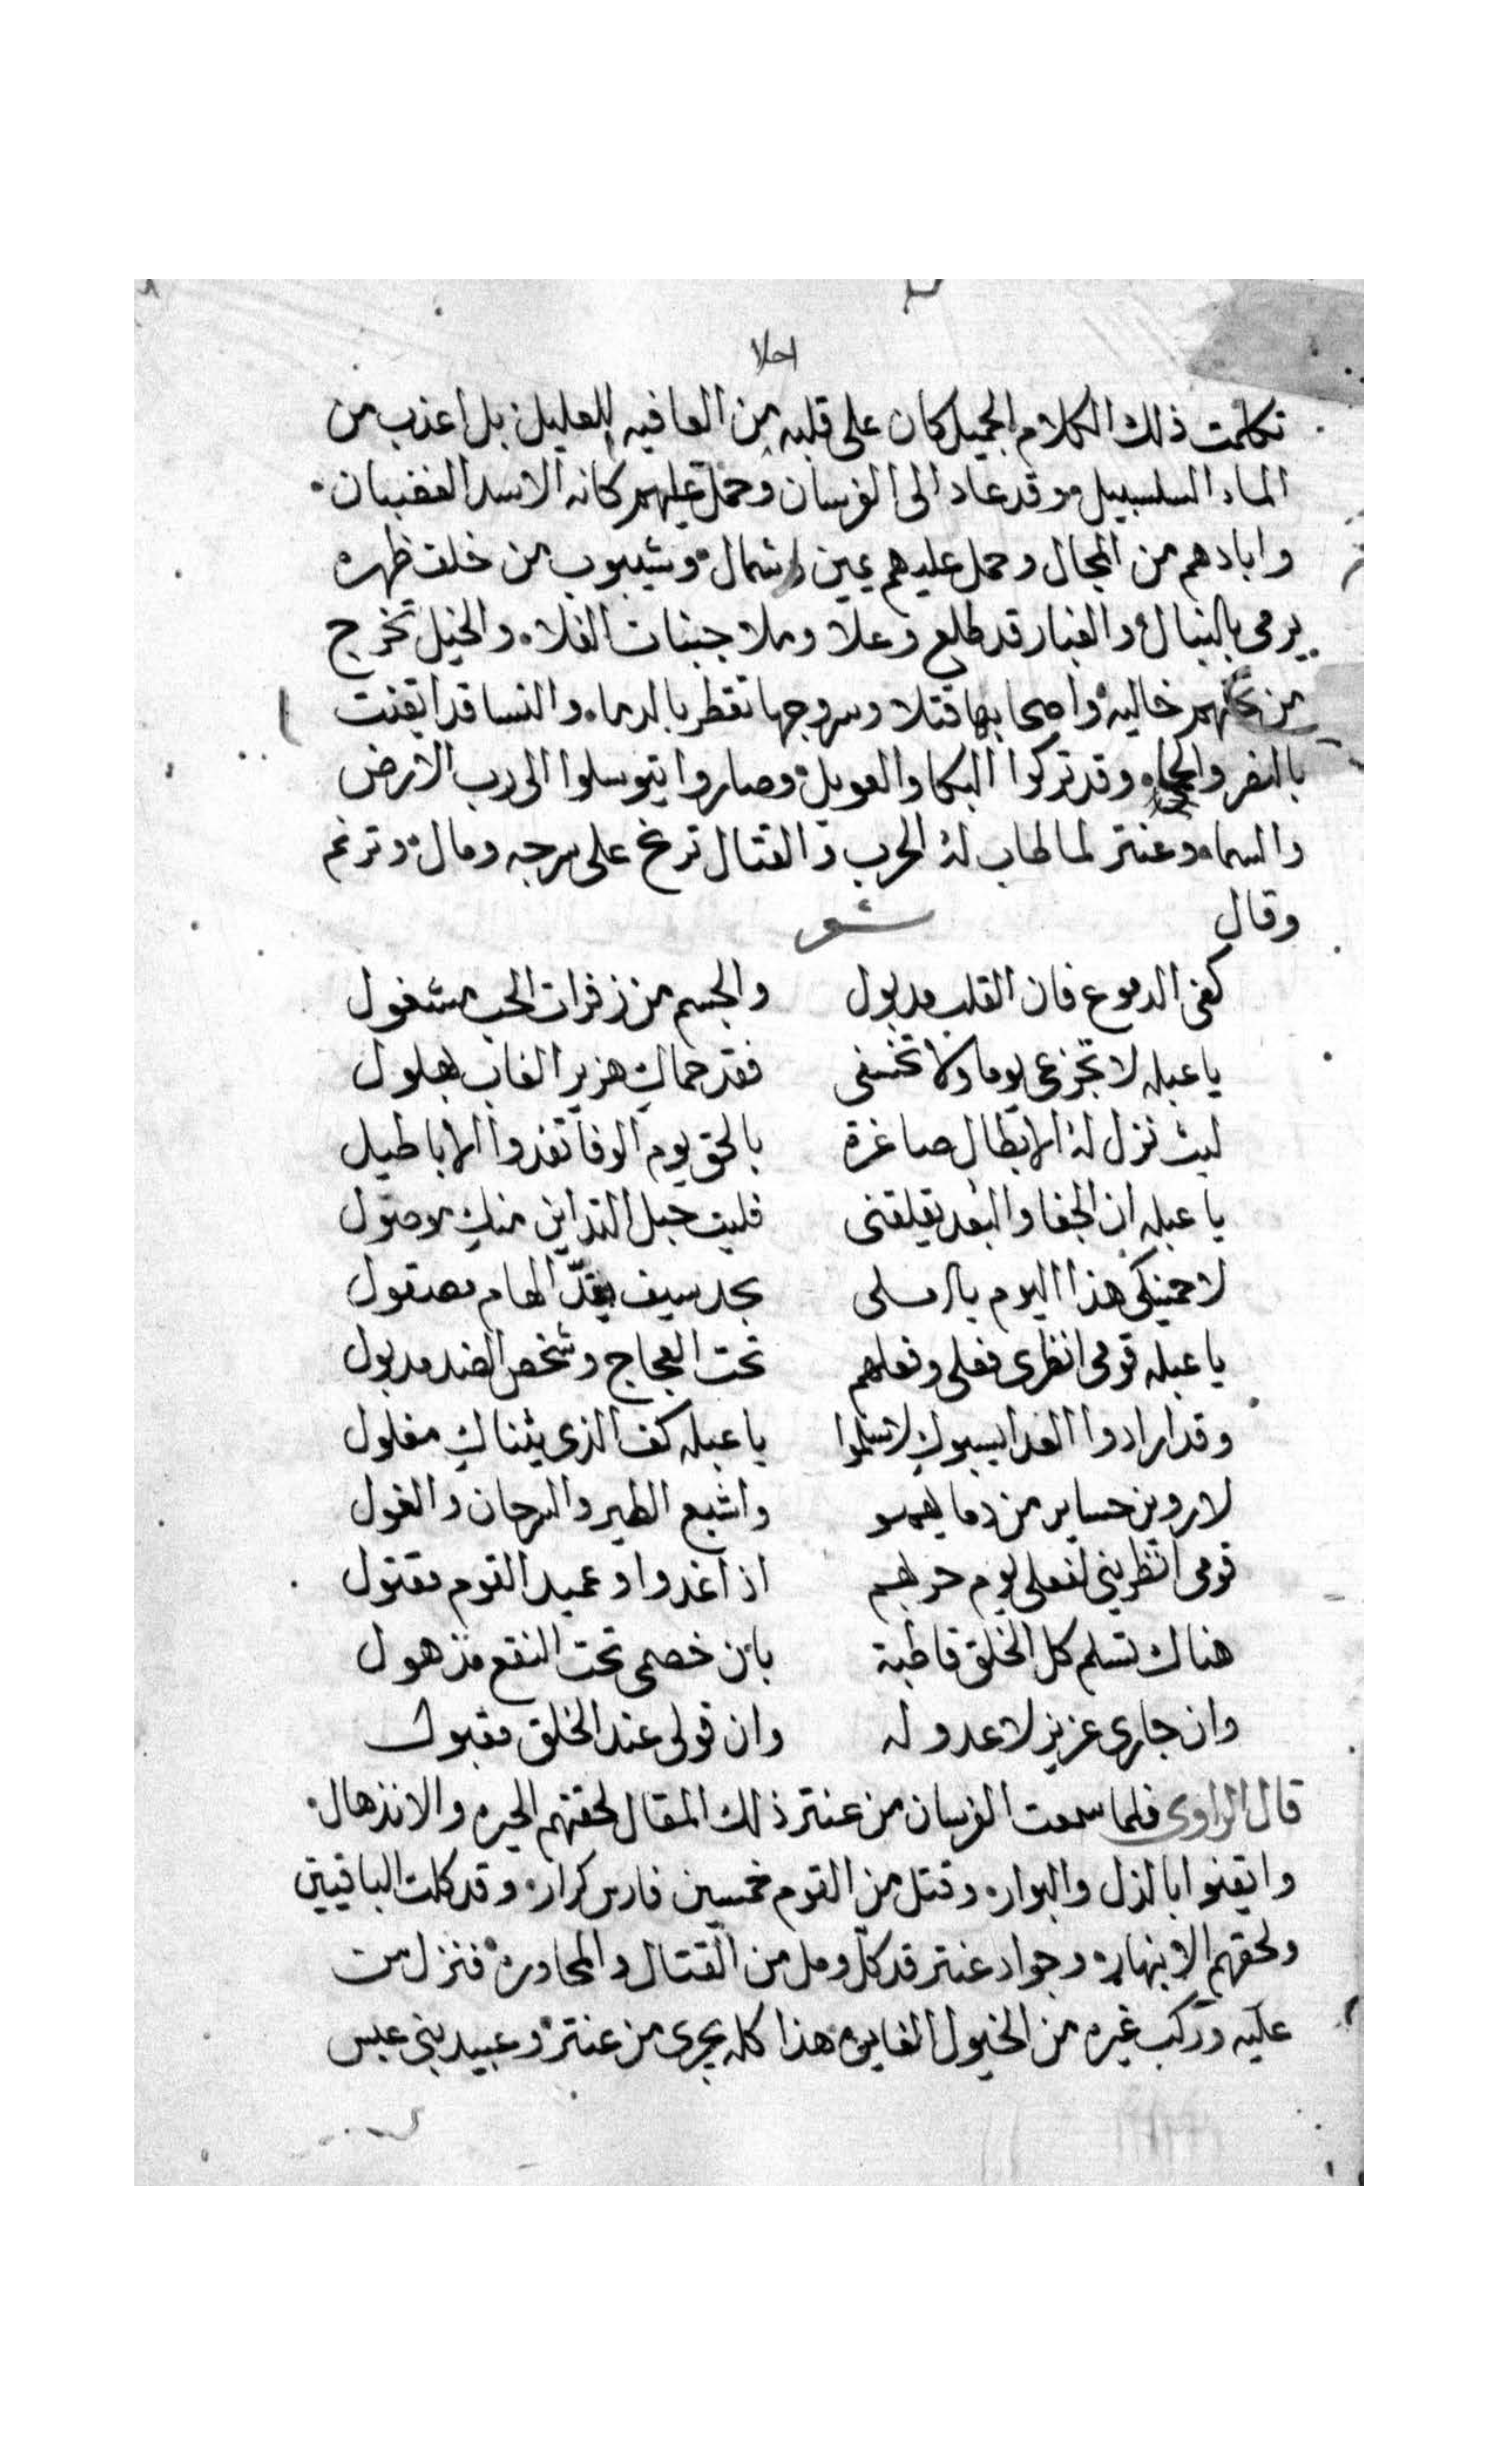 احلا
تكلمت ذلك الكلام الجميل كان على قلبه من العافيه للعليل بل اعذب من
الماء السلسبيل وقد عاد الى الفرسان وحمل عليهم كانه الاسد الغضبان
وابادهم من المجال وحمل عليهم يمين وشمال وشيبوب من خلف ظهره
يرمى بالنبال والغبار قد طلع وعلا وملا جنبات الفلاه والخيل تخرج
من تحتهم خاليه واصحابها قتلا وسروجها تقطر بالدماء والنسا قد ايقنت
بالنصر وقد تركوا البكا والعويل وصاروا يتوسلوا الى رب الارض
والسماء وعنتر لما طاب له الحرب والقتال ترنح على سرجه ومال وترنم
وقال شعر
كفى الدموع فان القلب مدبول والجسم من زفرات الحب مشغول
يا عبله لا تجزعى يوما ولا تخشى فقد حماك هزبر الغاب بهلول
ليث تزل له الابطال صاغرة بالحق يوم الوغا تغدوا الاباطيل
يا عبله ان الجفا والبعد يقلقنى فليت حبل التداين منك موصول
لاحمينكى هذا اليوم يا املى بحد سيف يقدّ الهام مصقول
يا عبله قومى انظرى فعلى وفعلهم تحت العجاج وشخص الضد مدبول
وقد ارادوا العدا يسبوك لا سلموا يا عبله كف الذى يشناك مغلول
لاروين حسامى من دمايهمو واشبع الطير والسرحان والغول
قومى انظرينى لفعلى يوم حربهم اذا غدوا وعميد القوم مقتول
هناك تسلم كل الخلق قاطبة بان خصمى تحت النقع مذهول
وان جارى عزيز لا عدو له وان قولى عند الخلق مقبول
قال الراوى فلما سمعت الفرسان من عنتر ذلك المقال لحقتهم الحيره والانذهال
وايقنوا بالذل والبوار وقتل من القوم خمسين فارس كرار وقد كلت الباقيين
ولحقهم الانبهار وجواد عنتر قد كلّ ومل من القتال والمحاوره فنزل من
عليه وركب غيره من الخيول الغايره هذا كله يجرى من عنتر وعبيد بنى عبس